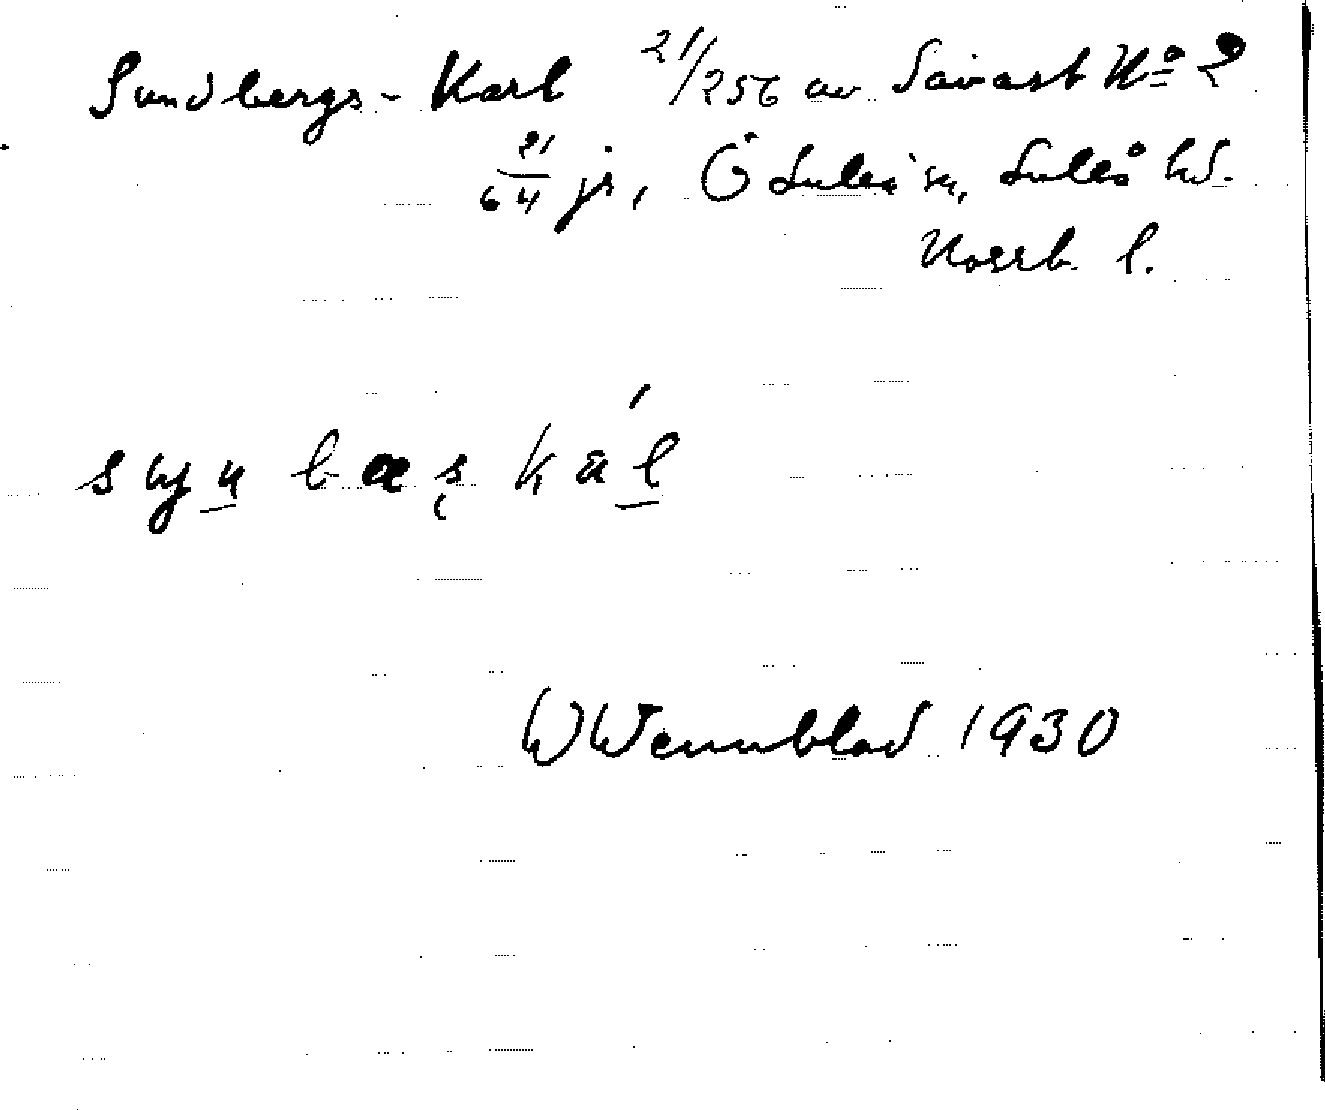 Sundbergs-Karl 21/256 av Sävast No 2
21/64 jr, Ö Luleå sn, Luleå hd.
Norrb. l.
WWennblad 1930